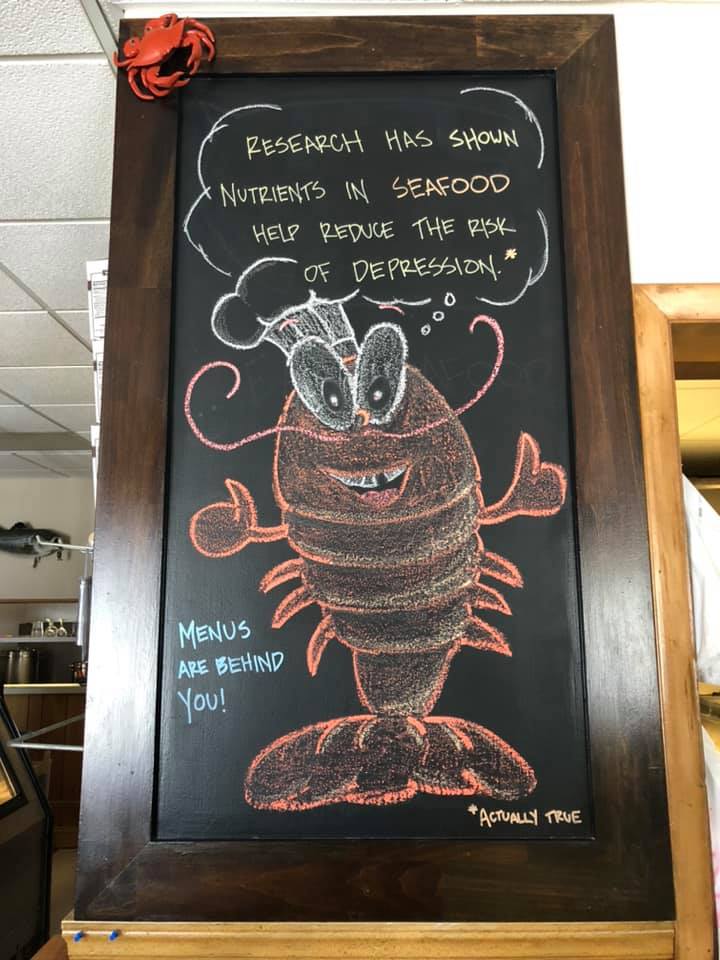 RESEARCH HAS SHOWN
NUTRIENTS IN SEAFOOD
HELP REDUCE THE RISK
OF DEPRESSION.*
MENUS
ARE BEHIND
YOU!
*ACTUALLY TRUE